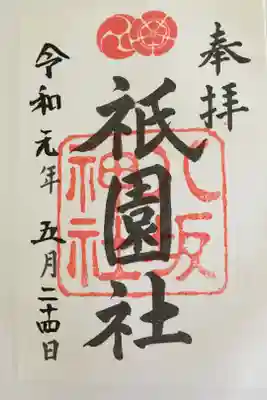 奉拝
八坂
神社
祇園社
令和元年 五月二十四日